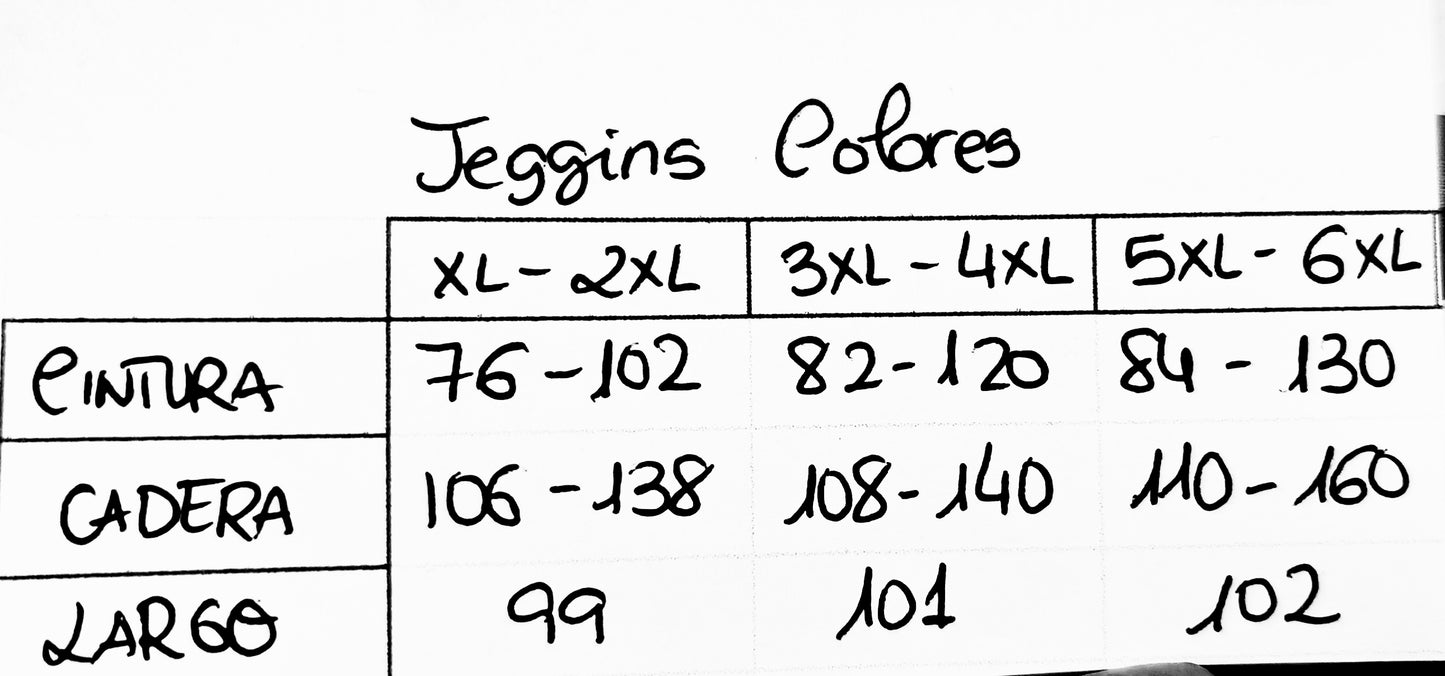 Jeggins Colores
XL - 2XL 3XL - 4XL 5XL - 6XL
CINTURA 76 - 102 82 - 120 84 - 130
CADERA 106 - 138 108 - 140 110 - 160
LARGO 99 101 102